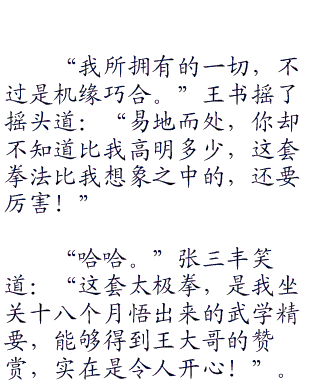 “我所拥有的一切，不
过是机缘巧合。”王书摇了
摇头道：“易地而处，你却
不知道比我高明多少，这套
拳法比我想象之中的，还要
厉害！”
“哈哈。”张三丰笑
道：“这套太极拳，是我坐
关十八个月悟出来的武学精
要，能够得到王大哥的赞
赏，实在是令人开心！”。